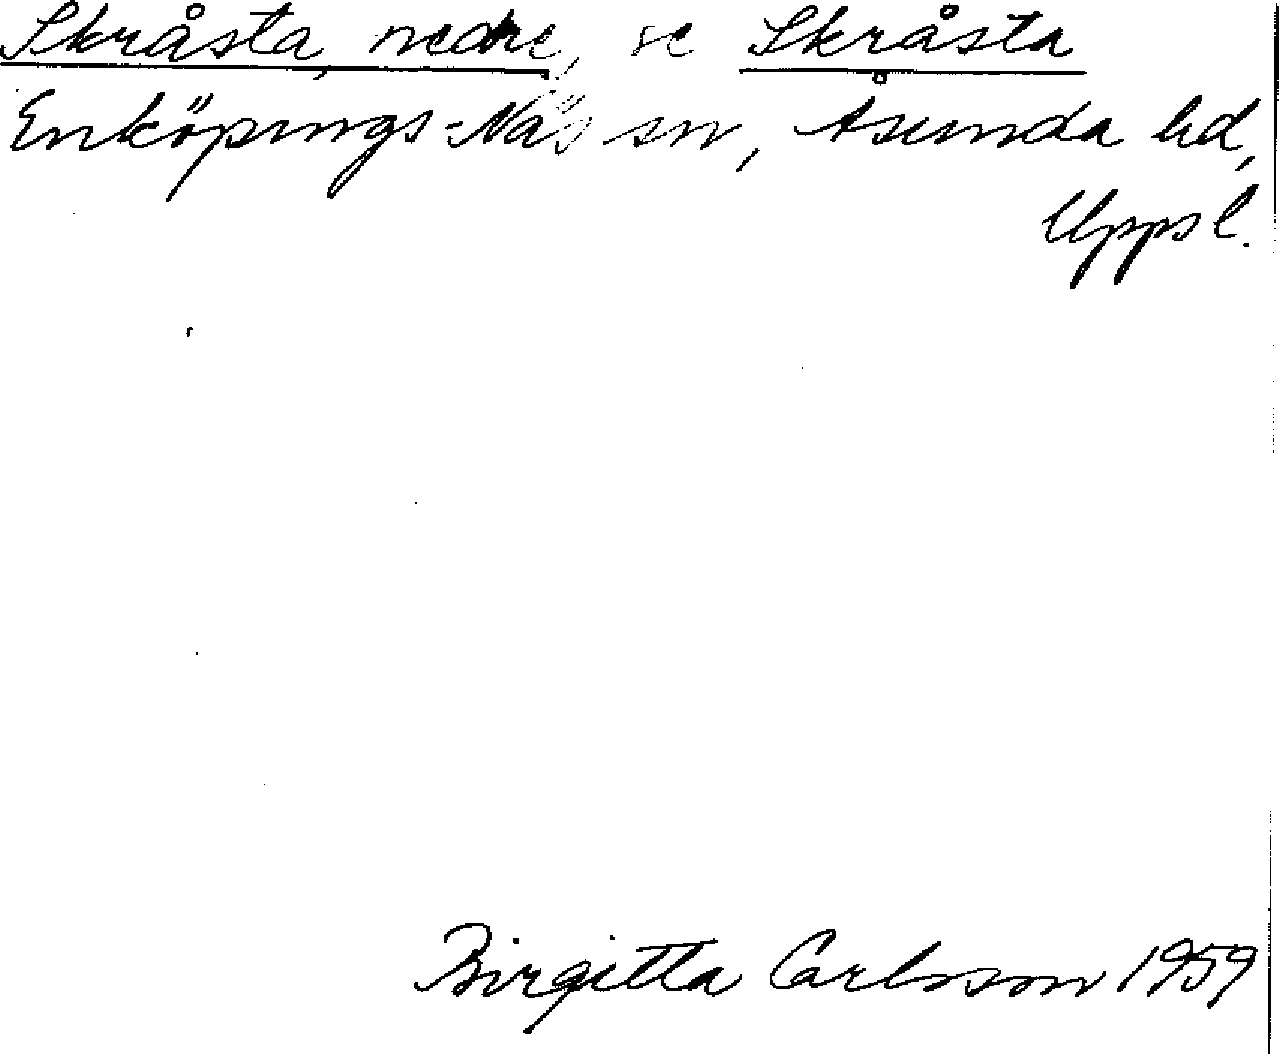 Skråsta, nedre, se Skråsta
Enköpings-Näs sn, Åsunda hd,
Uppsl.
Birgitta Carlsson 1959